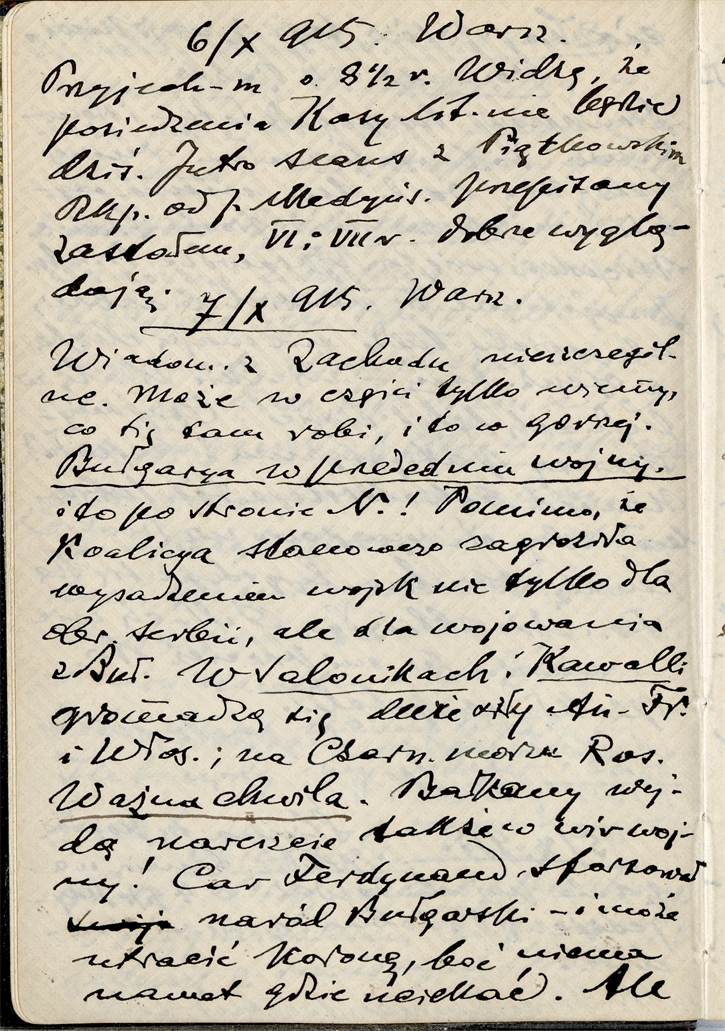 6/X 915. Warsz.
Przyjech-m o 8 1/2 r. Widzę, że
posiedzenia Kasy Lit. nie będzie
dziś. Jutro seans z Piątkowskim
Rkp. od p. Medyńs. przepisany
zastałem, VI i VII r. dobrze wyglą-
dają.
7/X 915. Warsz.
Wiadom. z Zachodu nieszczegól-
ne. Może w części tylko wiemy,
co się tam robi, i to w gorszej.
Bułgarya w przededniu wojny.
i to po stronie N.! Pomimo, że
Koalicya stanowczo zagroziła
wysadzeniem wojsk nie tylko dla
obr. Serbii, ale dla wojowania
z Buł. W Salonikach i Kawalli
gromadzą się duże siły An- Fr.
i Włos.; na Czarn. morzu Ros.
Ważna chwila. Bałkany wej-
dą nareszcie także w wir woj-
ny! Car Ferdynand sforsował
naród Bułgarski - i może
utracić koronę, boć niema
nawet gdzie uciekać. Ale